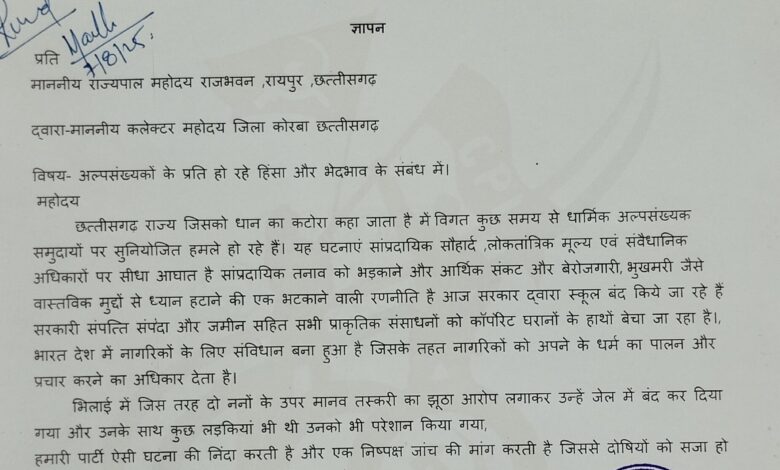 ज्ञापन
7/8/25.
प्रति
माननीय राज्यपाल महोदय राजभवन ,रायपुर ,छत्तीसगढ़
द्वारा-माननीय कलेक्टर महोदय जिला कोरबा छत्तीसगढ़
विषय- अल्पसंख्यकों के प्रति हो रहे हिंसा और भेदभाव के संबंध में।
महोदय
छत्तीसगढ़ राज्य जिसको धान का कटोरा कहा जाता है में विगत कुछ समय से धार्मिक अल्पसंख्यक
समुदायों पर सुनियोजित हमले हो रहे हैं। यह घटनाएं सांप्रदायिक सौहार्द ,लोकतांत्रिक मूल्य एवं संवैधानिक
अधिकारों पर सीधा आघात है सांप्रदायिक तनाव को भड़काने और आर्थिक संकट और बेरोजगारी, भुखमरी जैसे
वास्तविक मुद्दों से ध्यान हटाने की एक भटकाने वाली रणनीति है आज सरकार द्वारा स्कूल बंद किये जा रहे हैं
सरकारी संपत्ति संपदा और जमीन सहित सभी प्राकृतिक संसाधनों को कॉर्पोरेट घरानों के हाथों बेचा जा रहा है।,
भारत देश में नागरिकों के लिए संविधान बना हुआ है जिसके तहत नागरिकों को अपने के धर्म का पालन और
प्रचार करने का अधिकार देता है।
भिलाई में जिस तरह दो ननों के उपर मानव तस्करी का झूठा आरोप लगाकर उन्हें जेल में बंद कर दिया
गया और उनके साथ कुछ लड़कियां भी थी उनको भी परेशान किया गया,
हमारी पार्टी ऐसी घटना की निंदा करती है और एक निष्पक्ष जांच की मांग करती है जिससे दोषियों को सजा हो